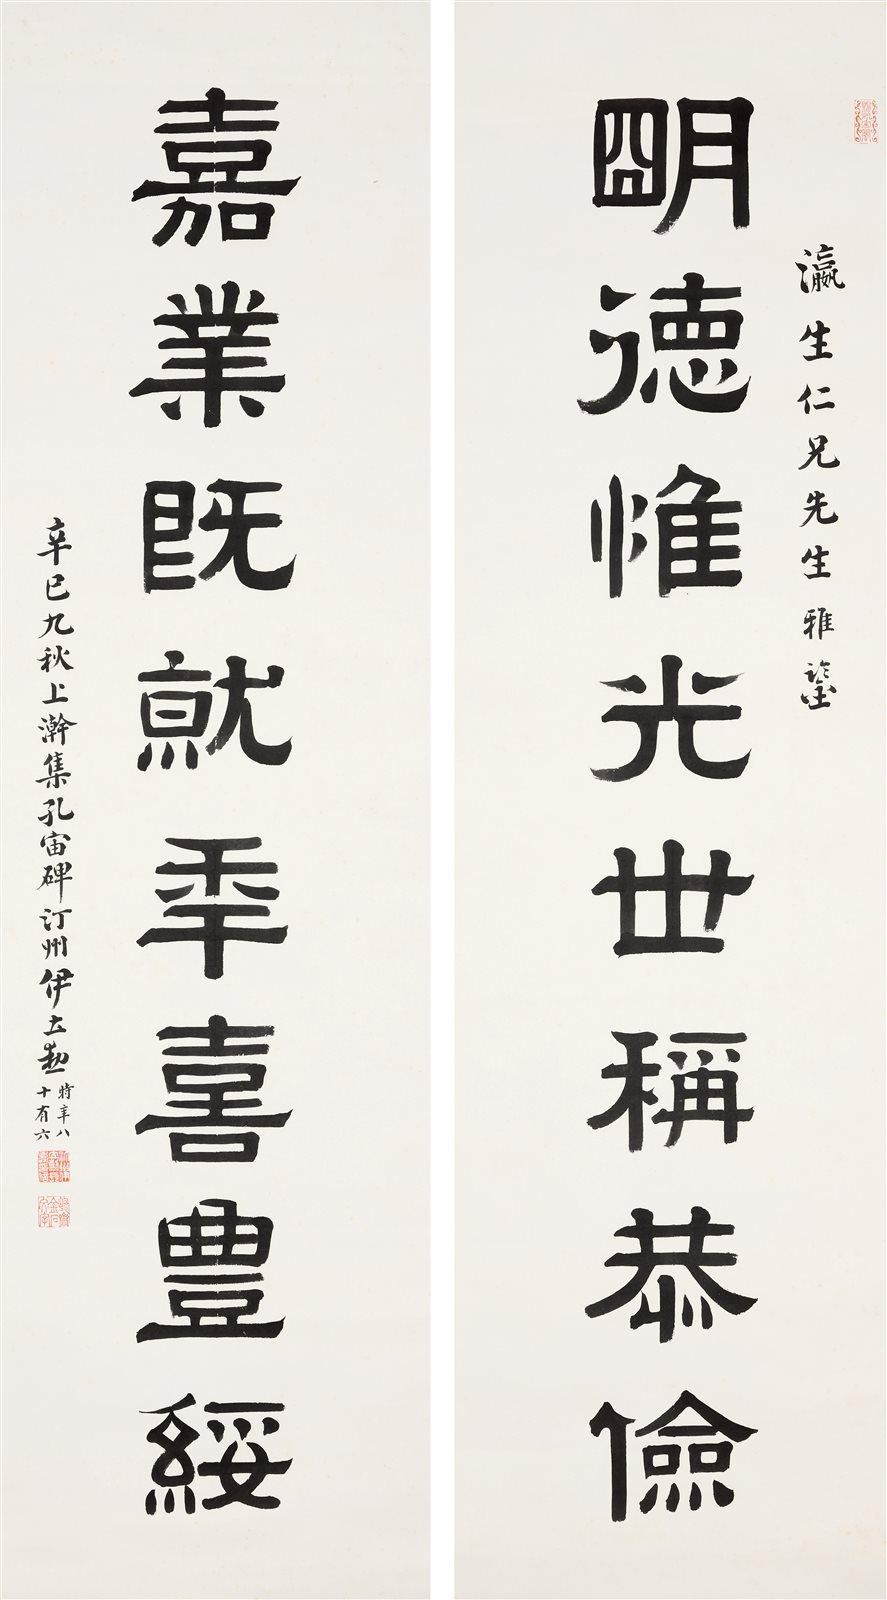 瀛生仁兄先生雅鑒
明德惟光世稱恭儉
嘉業既就年喜豊綏
辛巳九秋上澣集孔宙碑汀州伊立勳
時年八
十有六